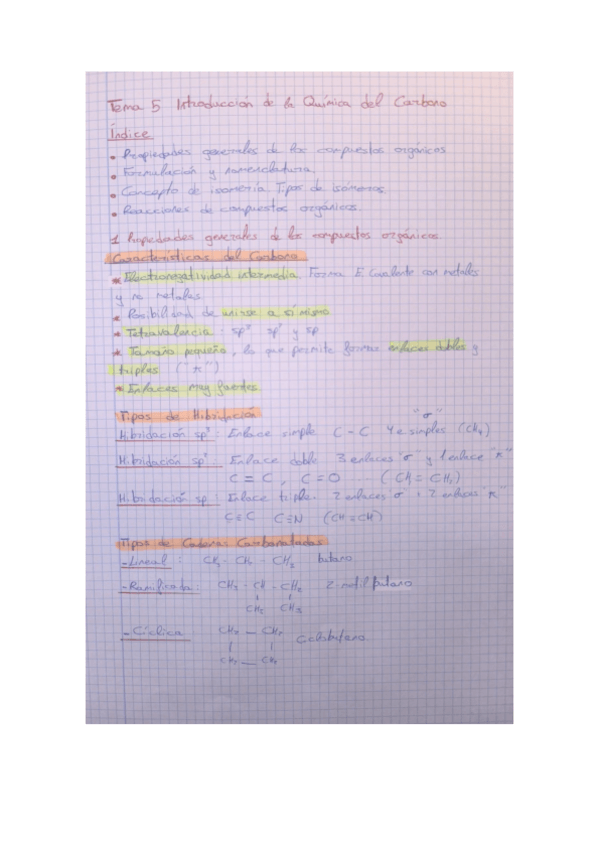 Tema 5 Introducción de la Química del Carbono
Índice
• Propiedades generales de los compuestos orgánicos
• Formulación y nomenclatura.
• Concepto de isomería. Tipos de isómeros.
• Reacciones de compuestos orgánicos.
1 Propiedades generales de los compuestos orgánicos.
Características del Carbono
* Electronegatividad intermedia. Forma E. Covalente con metales
y no metales
* Posibilidad de unirse a sí mismo
* Tetravalencia: sp³ sp² y sp
* Tamaño pequeño, lo que permite formar enlaces dobles y
triples ("π")
* Enlaces muy fuertes
Tipos de Hibridación "σ"
Hibridación sp³: Enlace simple C - C 4 e simples (CH₄)
Hibridación sp²: Enlace doble 3 enlaces σ y 1 enlace "π"
C = C , C = O (CH₂ = CH₂)
Hibridación sp: Enlace triple. 2 enlaces σ + 2 enlaces "π"
C≡C C≡N (CH≡CH)
Tipos de Cadenas Carbonatadas
- Lineal: CH₃ - CH₂ - CH₂ butano.
- Ramificada: CH₃ - CH - CH₂ 2-metilbutano
CH₃ CH₃
- Cíclica CH₂ — CH₂ Ciclobutano
CH₂ — CH₂